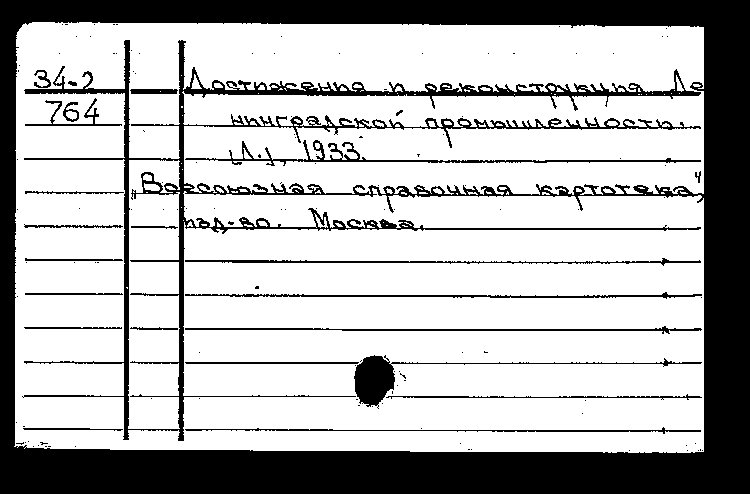 34-2 Достижения и реконструкция Ле
764 нинградской промышленности.
[Л.], 1933.
„Всесоюзная справочная картотека",
изд-во. Москва.